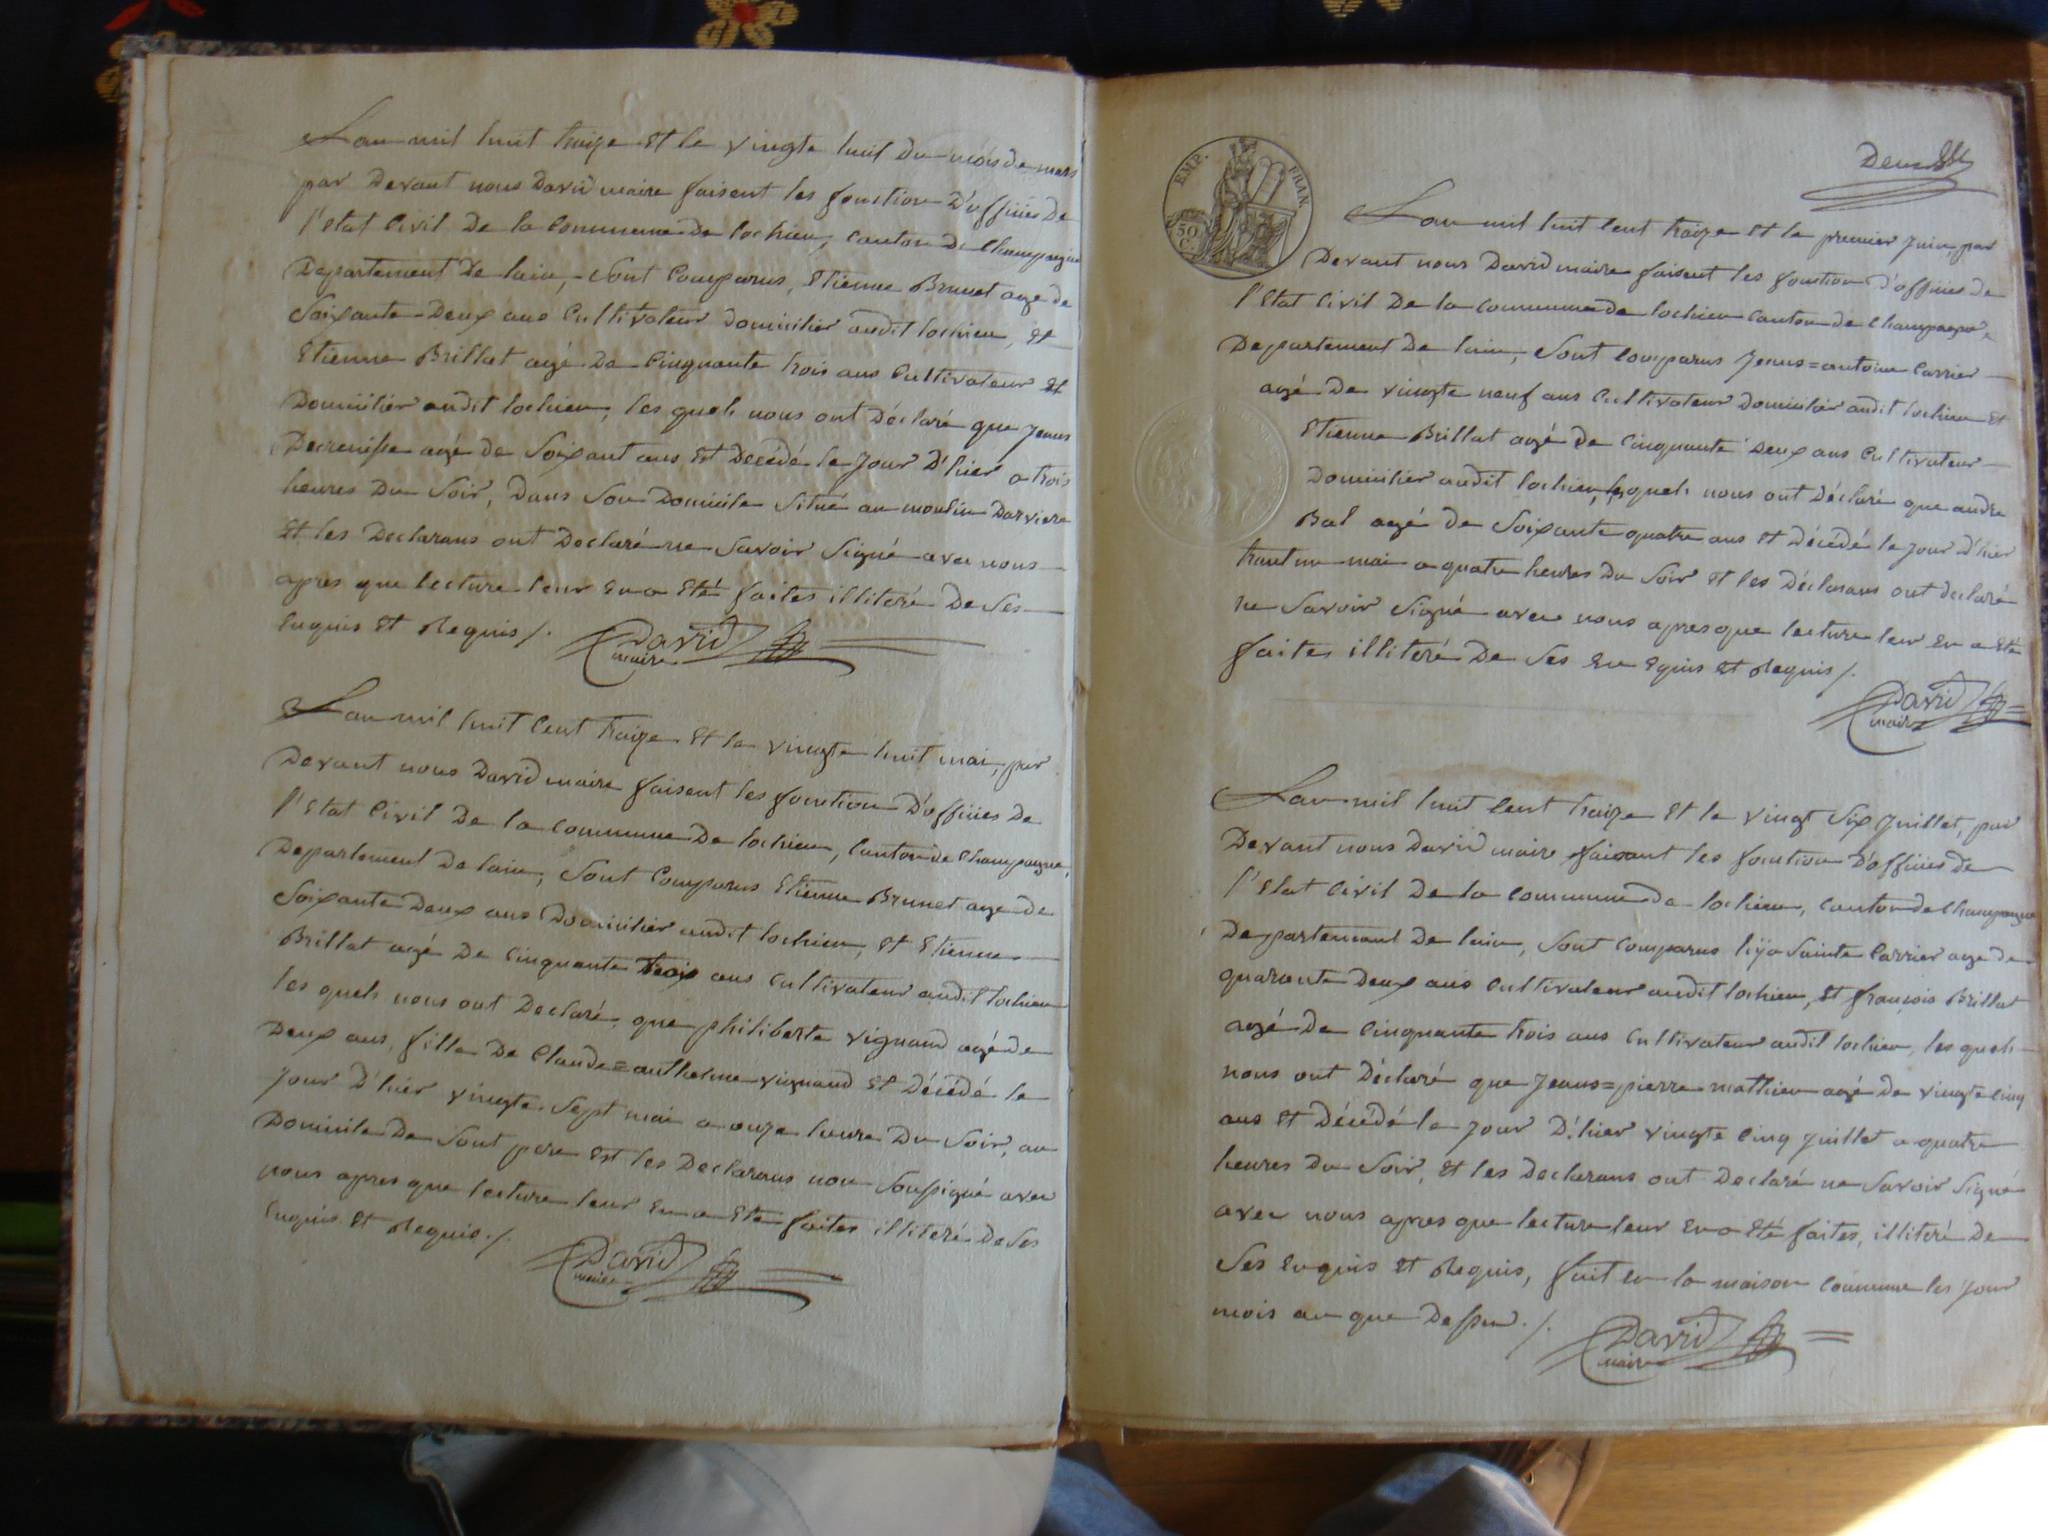 L'an mil huit traize et le vingte huit du mois de mars
par devant nous David maire faisent les fonction d'officies de
l'Etat Civil de la Commune de lochieu, canton de Champagne
Departement de lain, sont Comparus, Etienne Brunet age de
Soixante-Deux ans Cultivateur domicilier audit lochieu, et
Etienne Brillat agé de Cinquante trois ans Cultivateur et
Domicilier audit lochieu, les quels nous ont Déclaré que Jeans
Decreuisse agé de Soixant ans Est Décédé le Jour D'hier a trois
heures Du Soir, Dans Son Domicile Situé au moulin Darviere
Et les Declarans ont Declaré ne Savoir Signé avec nous
apres que lecture leur en a Eté faites illiteré De Ses
Enquis Et Requis /.
David
maire
L'an mil huit Cent Traize Et le vingte huit mai, par
Devant nous David maire faisent les fonction D'officies De
l'Etat Civil De la Commune De lochieu, Canton de Champagne,
Departement De lain, Sont Comparus Etienne Brunet age de
Soixante Deux ans Domicilier audit lochieu, Et Etienne
Brillat agé De Cinquante Trois ans Cultivateur audit lochieu
les quels nous ont Declaré, que philiberte vignand agé de
Deux ans, fille De Claude=anthelme vignand Et Décédé le
Jour D'hier vingte Sept mai a onze heure Du Soir, au
Domicile De Sont pere Est les Declarans non Soussigné avec
nous apres que lecture leur En a Eté faites illiteré De Ses
Enquis Et Requis /.
David
maire
EMP. FRAN.
50
C.
Deux
L'an mil huit Cent traize Et le premier Juin, par
Devant nous David maire faisent les fonction d'officies de
l'Etat Civil De la Commune de lochieu Canton de Champagne,
Departement De lain, Sont Comparus Jeans=antoine Carrier
agé De vingte neuf ans Cultivateur Domicilier audit lochieu Et
Etienne Brillat agé De Cinquante Deux ans Cultivateur
Domicilier audit lochieu, lesquels nous ont Déclaré que andre
Bal agé de Soixante quatre ans Et Décédé le Jour D'hier
trant un mai a quatre heures Du Soir Et les Déclarans ont declaré
ne Savoir Signé avec nous apres que lecture leur en a Eté
faites illiteré De Ses En Equis Et Requis /.
David
maire
L'an mil huit Cent traize Et le vingt Six Juillet, par
Devant nous David maire faisant les fonction D'officies de
l'Etat Civil De la Commune de lochieu, Canton de Champagne
Departement De lain, Sont Comparus Sainte Carrier age de
quarante Deux ans Cultivateur audit lochieu, Et françois Brillat
agé De Cinquante trois ans Cultivateur audit lochieu, les quels
nous ont Déclaré que Jeans=pierre mathieu agé De vingte Cinq
ans Et Décédé le Jour D'hier vingte Cinq Juillet a quatre
heures Du Soir, Et les Declarans ont Declaré ne Savoir Signé
avec nous apres que lecture leur En a Eté faites, illiteré De
Ses Enquis Et Requis, fait En la maison Commune les Jour
mois an que Dessu. /.
David
maire